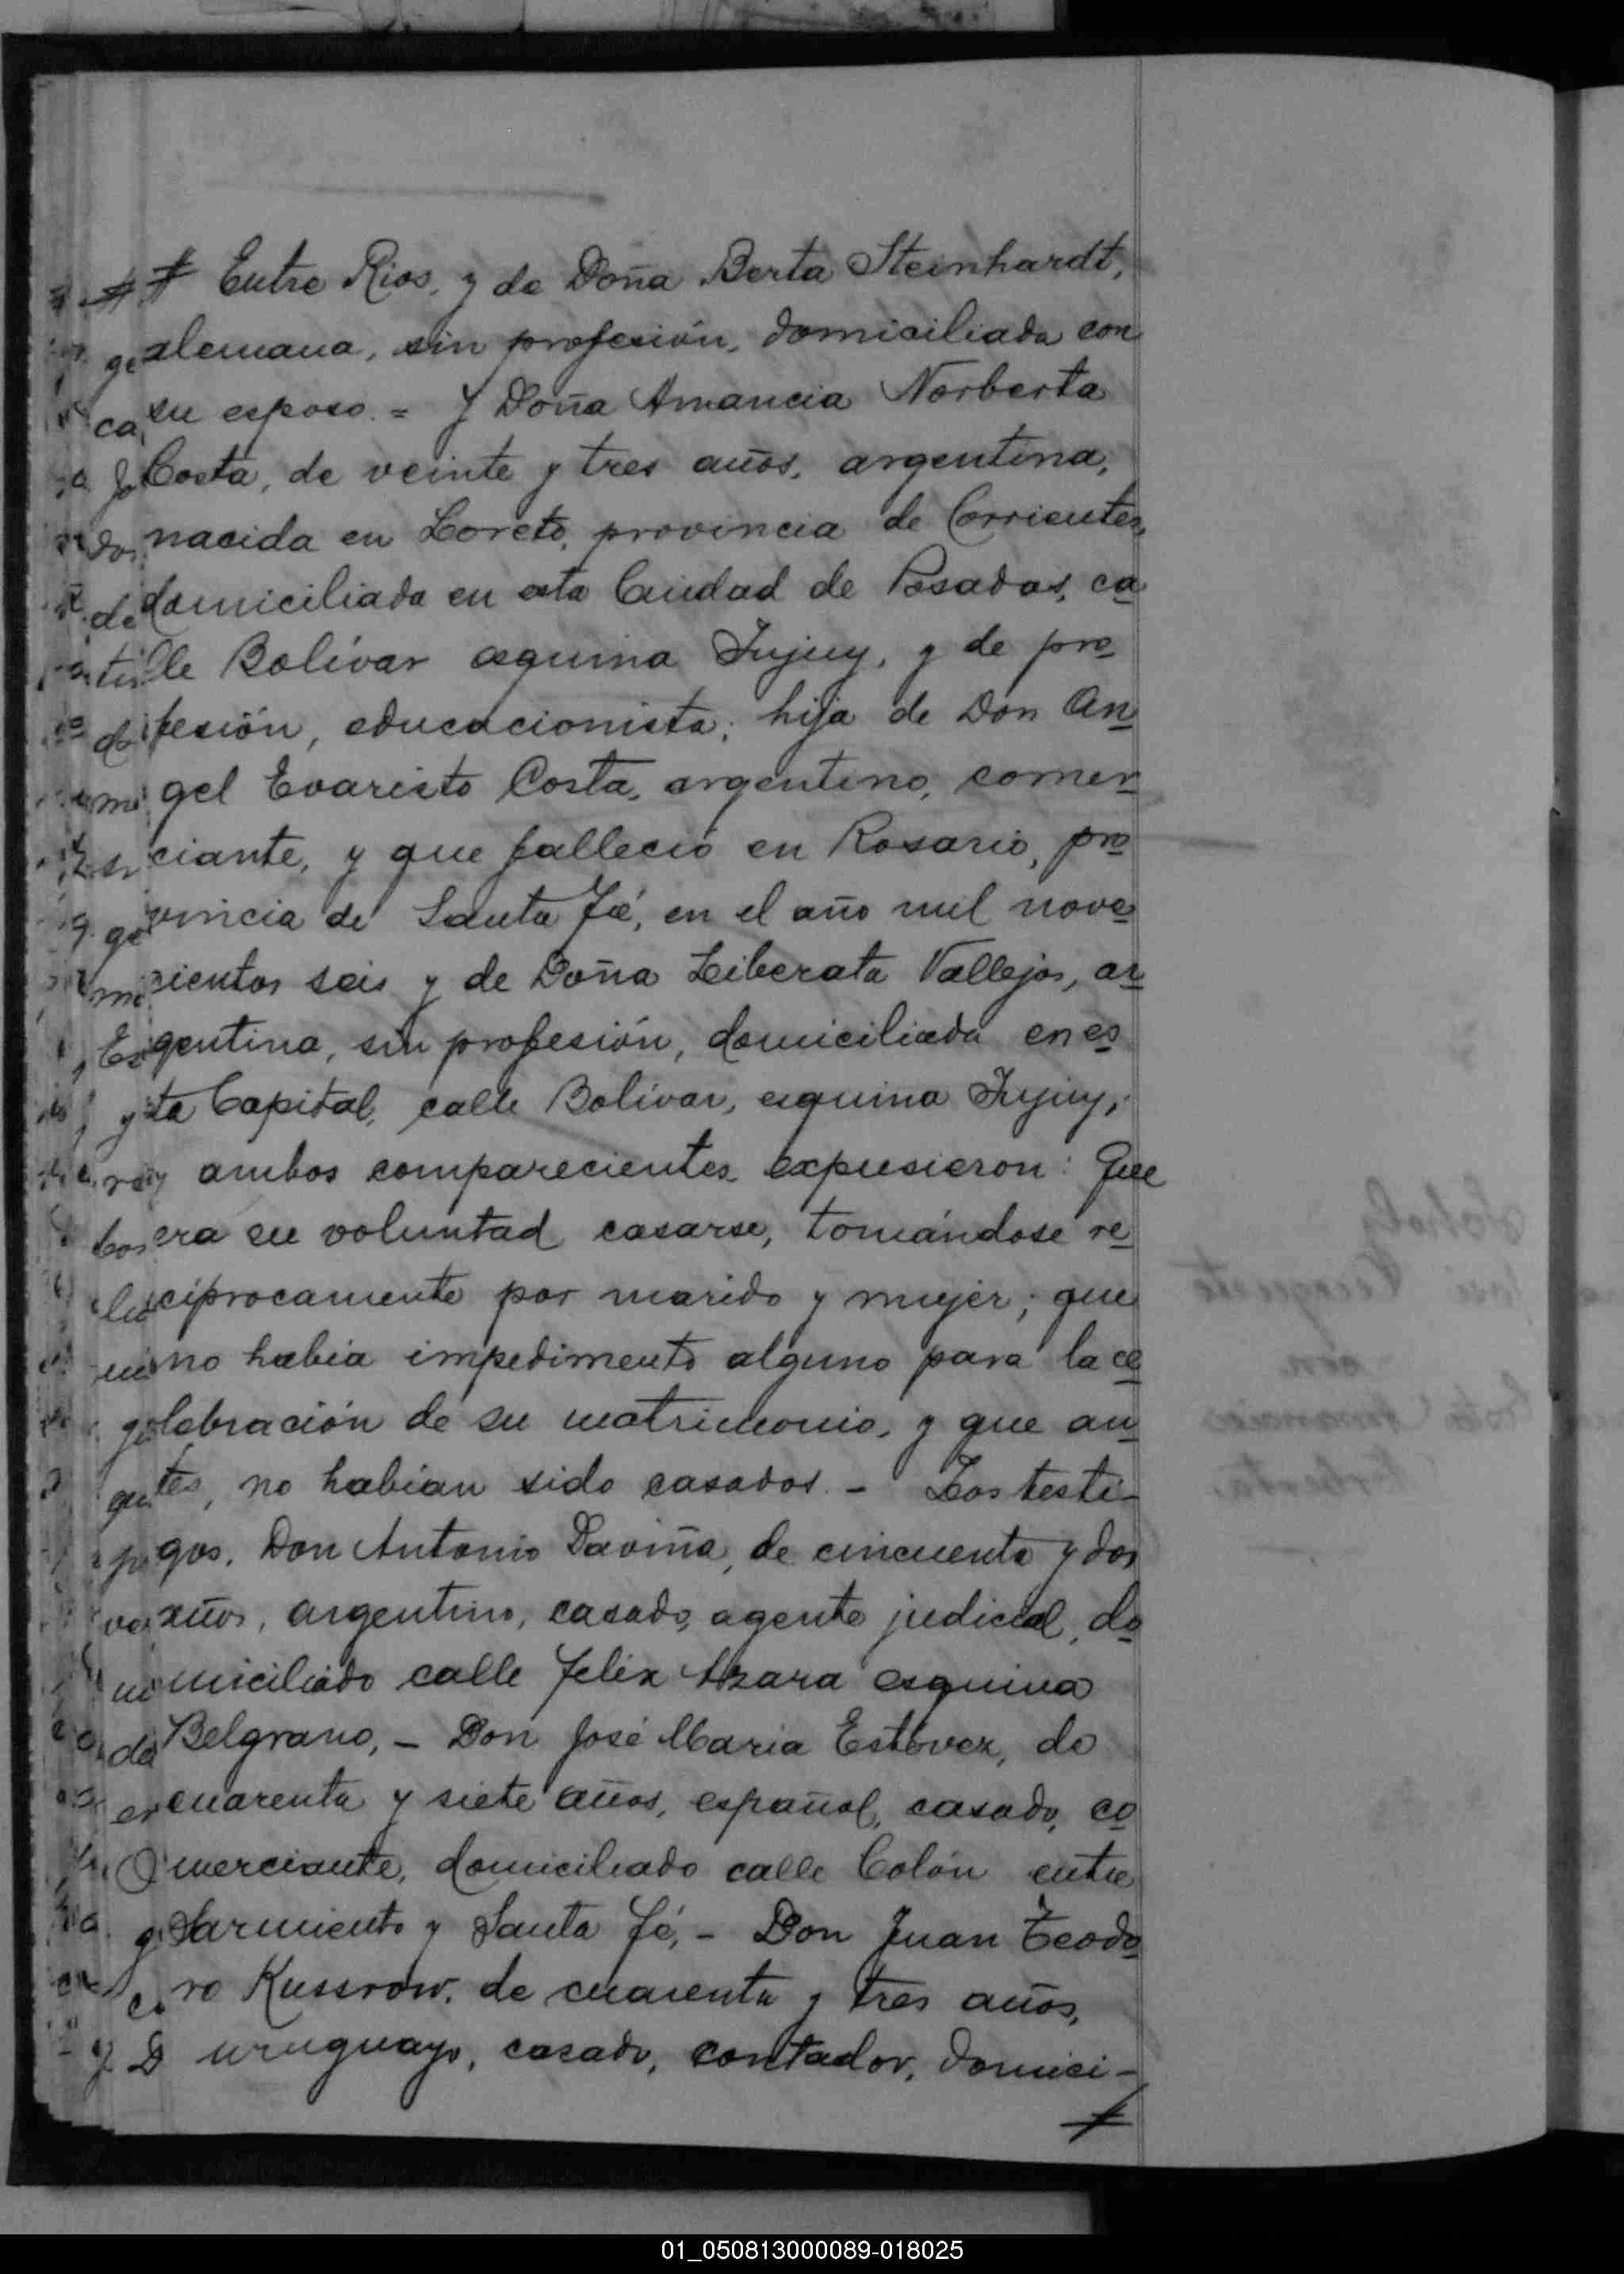 Entre Rios, y de Doña Berta Steinhardt,
alemana, sin profesión, domiciliada con
su esposo. = Y Doña Amancia Norberta
Costa, de veinte y tres años, argentina,
nacida en Loreto, provincia de Corrientes,
domiciliada en esta Ciudad de Posadas, ca
lle Bolívar esquina Jujuy, y de pro
fesión, educacionista; hija de Don An
gel Evaristo Costa, argentino, comer
ciante, y que falleció en Rosario, pro
vincia de Santa Fé, en el año mil nove
cientos seis y de Doña Liberata Vallejos, ar
gentina, sin profesión, domiciliada en es
ta Capital, calle Bolívar, esquina Jujuy,
y ambos comparecientes expusieron: Que
era su voluntad casarse, tomándose re
cíprocamente por marido y mujer; que
no habia impedimento alguno para la ce
lebración de su matrimonio, y que an
tes, no habían sido casados. - Los testi-
gos, Don Antonio Daviña, de cincuenta y dos
años, argentino, casado, agente judicial, do
miciliado calle Felix Azara esquina
Belgrano, - Don José Maria Estévez, de
cuarenta y siete años, español, casado, co
merciante, domiciliado calle Colón entre
Sarmiento y Santa Fé, - Don Juan Teodo
ro Kussrow, de cuarenta y tres años,
uruguayo, casado, contador, domici-
01_050813000089-018025